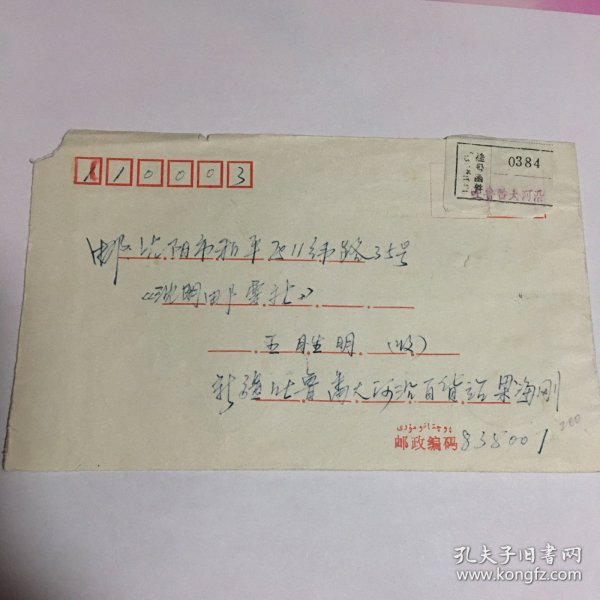 110003
挂号函件
0384
吐鲁番大河沿
邮 沈阳市和平区11纬路35号
王胜明(收)
新疆吐鲁番大河沿百货站 果海刚
邮政编码 838001
200
孔夫子旧书网
www.kongfz.com